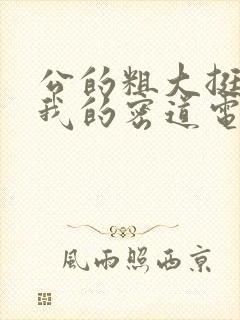 公的粗大挺
我的密道电
風雨照西京